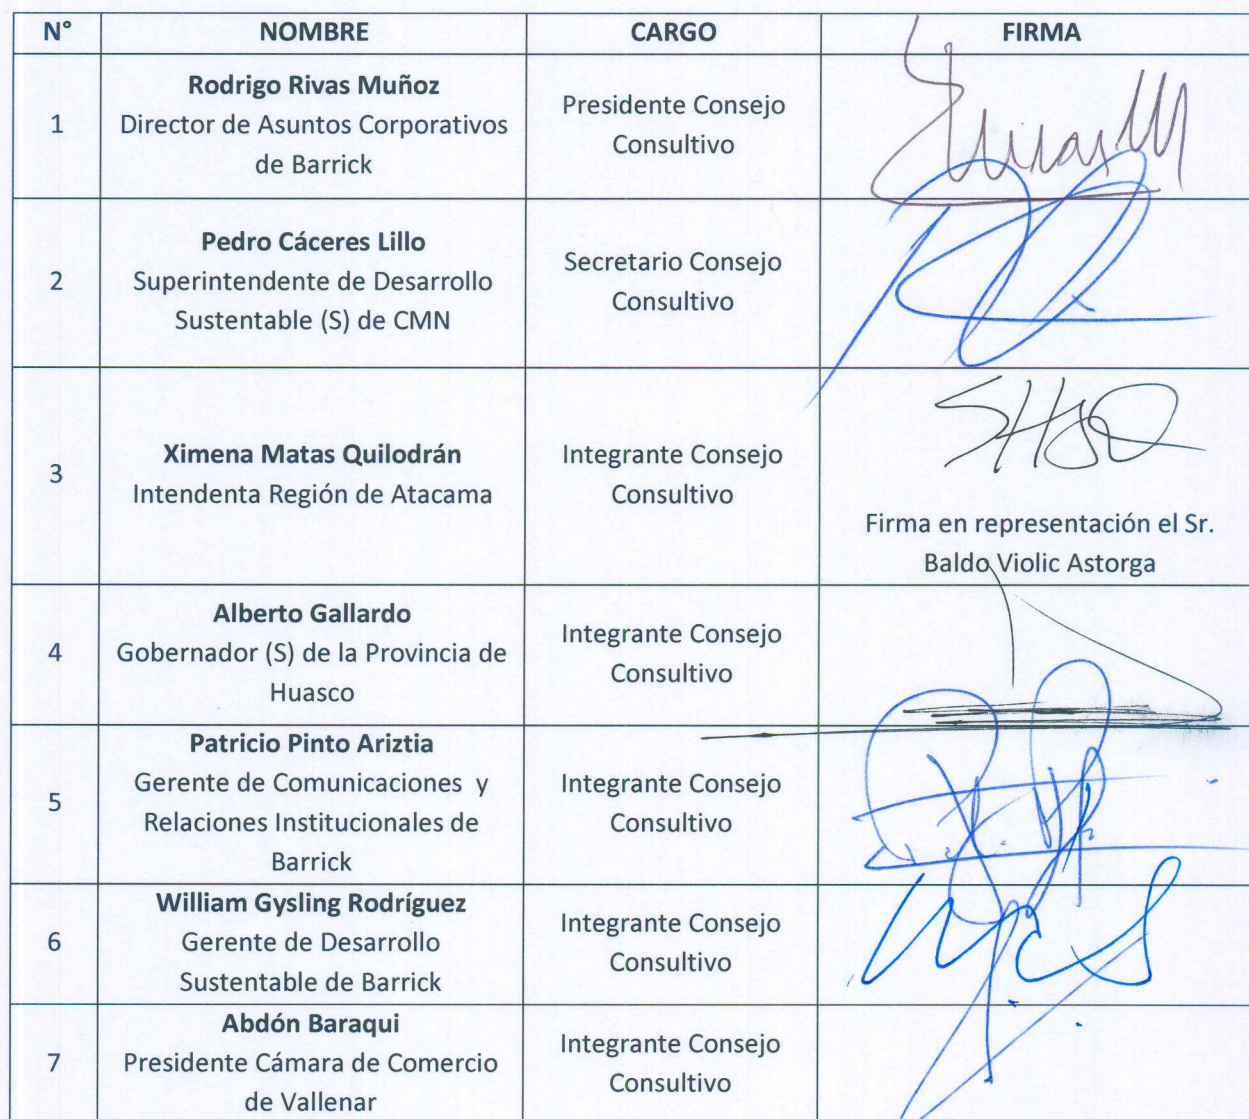 N° NOMBRE CARGO FIRMA
1
Rodrigo Rivas Muñoz
Director de Asuntos Corporativos
de Barrick
Presidente Consejo
Consultivo
2
Pedro Cáceres Lillo
Superintendente de Desarrollo
Sustentable (S) de CMN
Secretario Consejo
Consultivo
3
Ximena Matas Quilodrán
Intendenta Región de Atacama
Integrante Consejo
Consultivo
Firma en representación el Sr.
Baldo Violic Astorga
4
Alberto Gallardo
Gobernador (S) de la Provincia de
Huasco
Integrante Consejo
Consultivo
5
Patricio Pinto Ariztia
Gerente de Comunicaciones y
Relaciones Institucionales de
Barrick
Integrante Consejo
Consultivo
6
William Gysling Rodríguez
Gerente de Desarrollo
Sustentable de Barrick
Integrante Consejo
Consultivo
7
Abdón Baraqui
Presidente Cámara de Comercio
de Vallenar
Integrante Consejo
Consultivo